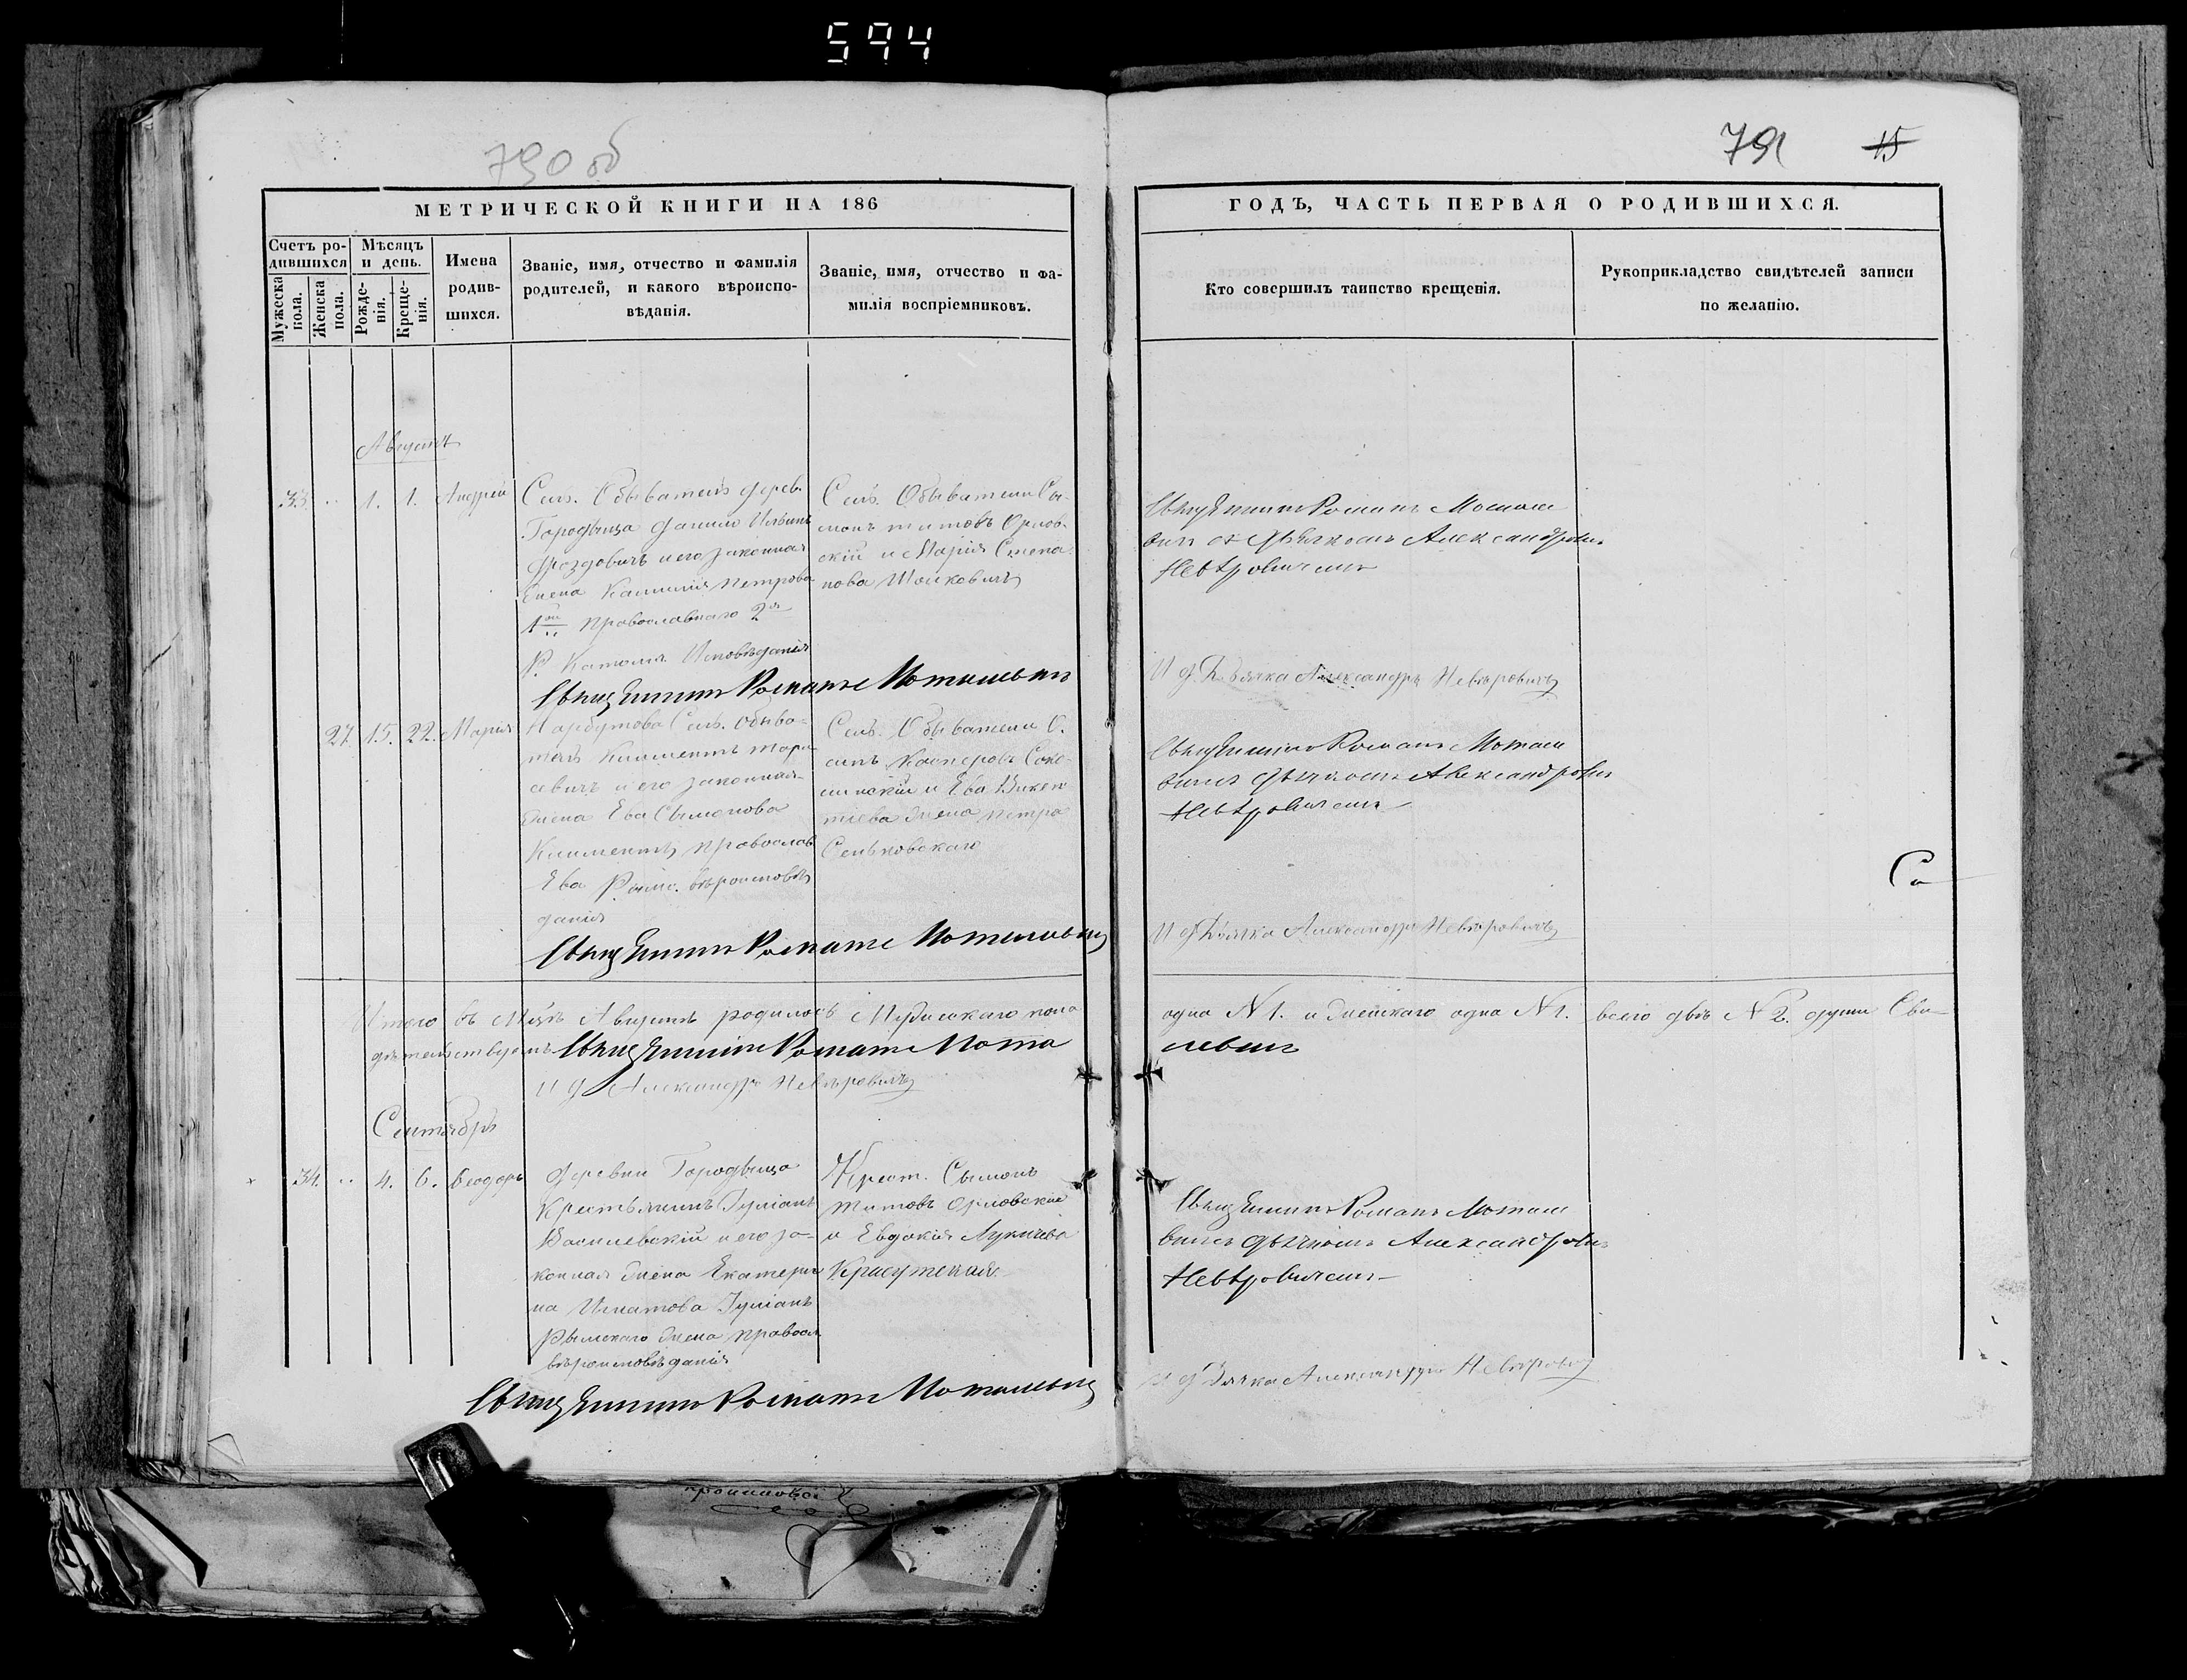 594
790 об
791 15
МЕТРИЧЕСКОЙ КНИГИ НА 186
Счетъ родившихся
Мужеска пола.
Женска пола.
Мѣсяцъ и день.
Рожденія.
Крещенія.
Имена родившихся.
Званіе, имя, отчество и фамилія
родителей, и какого вѣроиспо-
вѣданія.
Званіе, имя, отчество и фа-
милія воспріемниковъ.
ГОДЪ, ЧАСТЬ ПЕРВАЯ О РОДИВШИХСЯ.
Кто совершилъ таинство крещенія.
Рукоприкладство свидѣтелей записи
по желанію.
Августъ
33 1. 1. Андрей
Сел. Обыватель дерев.
Городвища Данило Ильинъ
Дроздовичъ и его законная
жена Камилія Петрова
1ый Православнаго 2я
Р. Католич. Исповѣданія
Священникъ Романъ
Сел. Обыватели Сы-
монъ Титовъ Орлов-
скій и Марія Степа-
нова
Священникъ Романъ
съ дьячкомъ Александромъ
Невѣровичемъ
И д Дьячка Александръ Невѣровичъ
27. 15. 22. Марія
Нарбутова Сел. Обыва-
тель Климентъ
и его законная
жена Ева Сымонова
Климентъ Православ
Ева Рим. вѣроисповѣ
данія
Священникъ Романъ
Сел. Обыватели О-
сипъ Касперовъ
и Ева Викен
тіева жена Петра
Сеньковскаго
Священникъ Романъ
дьячкомъ Александромъ
Невѣровичемъ
И д Дьячка Александръ Невѣровичъ
Итого въ М-цѣ Августѣ родилось Мужескаго пола
одна N 1. и женскаго одна N 1. всего двѣ N 2. души Сви-
дѣтельствуемъ Священникъ Романъ
И д Александръ Невѣровичъ
Сентябрь
34. 4. 6. Ѳеодоръ
Деревни Городвища
Крестьянинъ Іуліанъ
Василевскій и его за-
конная жена Екатери
на Игнатова Іуліанъ
Рымскаго жена Правосл
вѣроисповѣданія
Священникъ Романъ
Крест. Сымонъ
Титовъ Орловскій
и Евдокія
Священникъ Романъ
дьячкомъ Александромъ
Невѣровичемъ
И д Дьячка Александръ Невѣровичъ